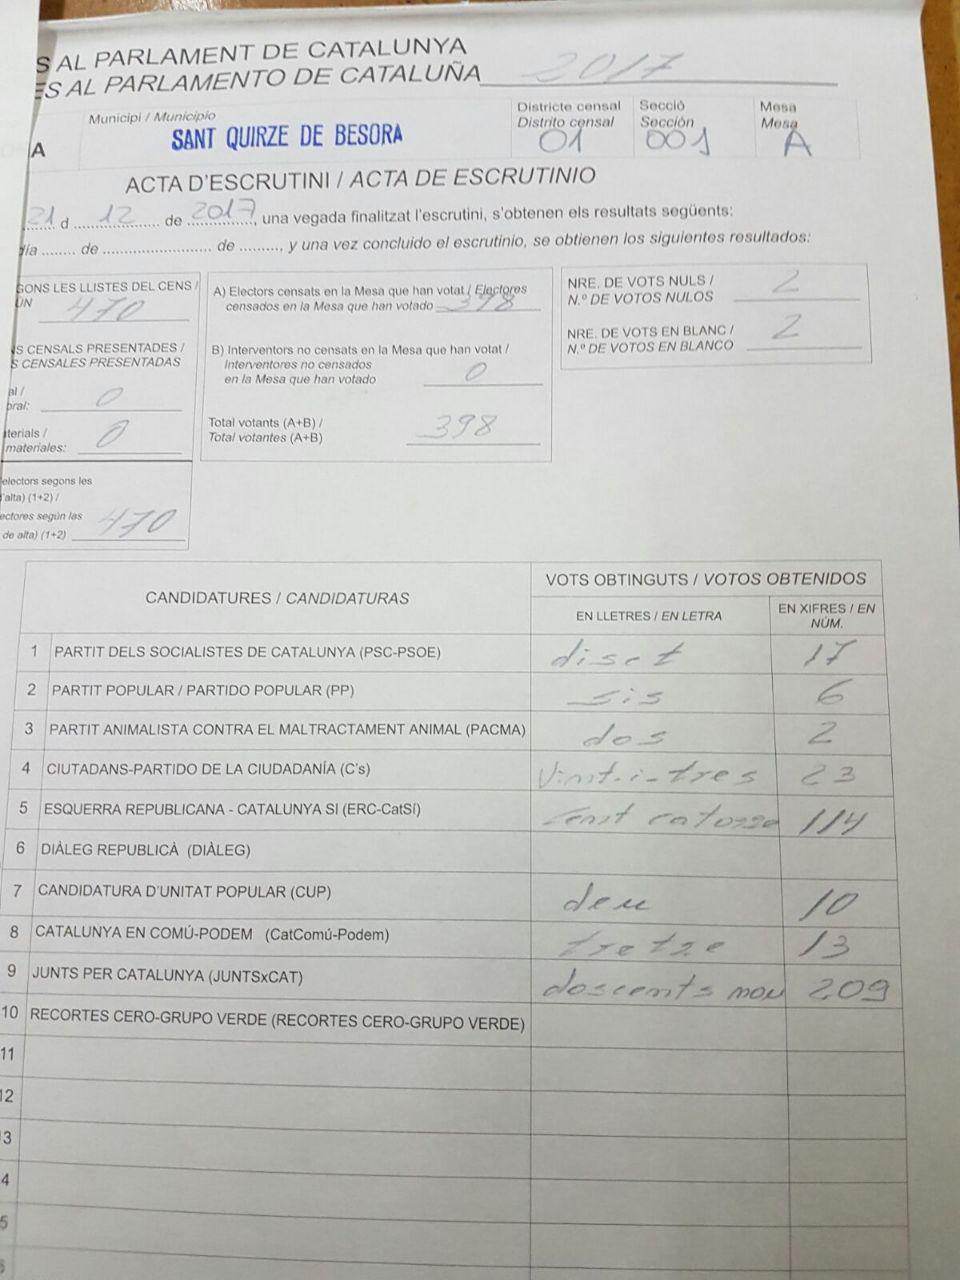 S AL PARLAMENT DE CATALUNYA
ES AL PARLAMENTO DE CATALUÑA 2017
A
Municipi / Municipio
SANT QUIRZE DE BESORA
Districte censal
Distrito censal
01
Secció
Sección
001
Mesa
Mesa
A
ACTA D'ESCRUTINI / ACTA DE ESCRUTINIO
21 d 12 de 2017, una vegada finalitzat l'escrutini, s'obtenen els resultats següents:
día ........ de ........................ de .........., y una vez concluido el escrutinio, se obtienen los siguientes resultados:
GONS LES LLISTES DEL CENS /
ÚN 470
S CENSALS PRESENTADES /
S CENSALES PRESENTADAS
al /
oral: 0
terials /
materiales: 0
electors segons les
d'alta) (1+2) /
ectores según las
de alta) (1+2) 470
A) Electors censats en la Mesa que han votat / Electores
censados en la Mesa que han votado 398
B) Interventors no censats en la Mesa que han votat /
Interventores no censados
en la Mesa que han votado 0
Total votants (A+B) /
Total votantes (A+B) 398
NRE. DE VOTS NULS /
N.º DE VOTOS NULOS 2
NRE. DE VOTS EN BLANC /
N.º DE VOTOS EN BLANCO 2
CANDIDATURES / CANDIDATURAS
VOTS OBTINGUTS / VOTOS OBTENIDOS
EN LLETRES / EN LETRA
EN XIFRES / EN
NÚM.
1 PARTIT DELS SOCIALISTES DE CATALUNYA (PSC-PSOE) diset 17
2 PARTIT POPULAR / PARTIDO POPULAR (PP) sis 6
3 PARTIT ANIMALISTA CONTRA EL MALTRACTAMENT ANIMAL (PACMA) dos 2
4 CIUTADANS-PARTIDO DE LA CIUDADANÍA (C's) Vint-i-tres 23
5 ESQUERRA REPUBLICANA - CATALUNYA SI (ERC-CatSí) catorze 114
6 DIÀLEG REPUBLICÀ (DIÀLEG)
7 CANDIDATURA D'UNITAT POPULAR (CUP) deu 10
8 CATALUNYA EN COMÚ-PODEM (CatComú-Podem) tretze 13
9 JUNTS PER CATALUNYA (JUNTSxCAT) doscents nou 209
10 RECORTES CERO-GRUPO VERDE (RECORTES CERO-GRUPO VERDE)
11
12
3
4
5